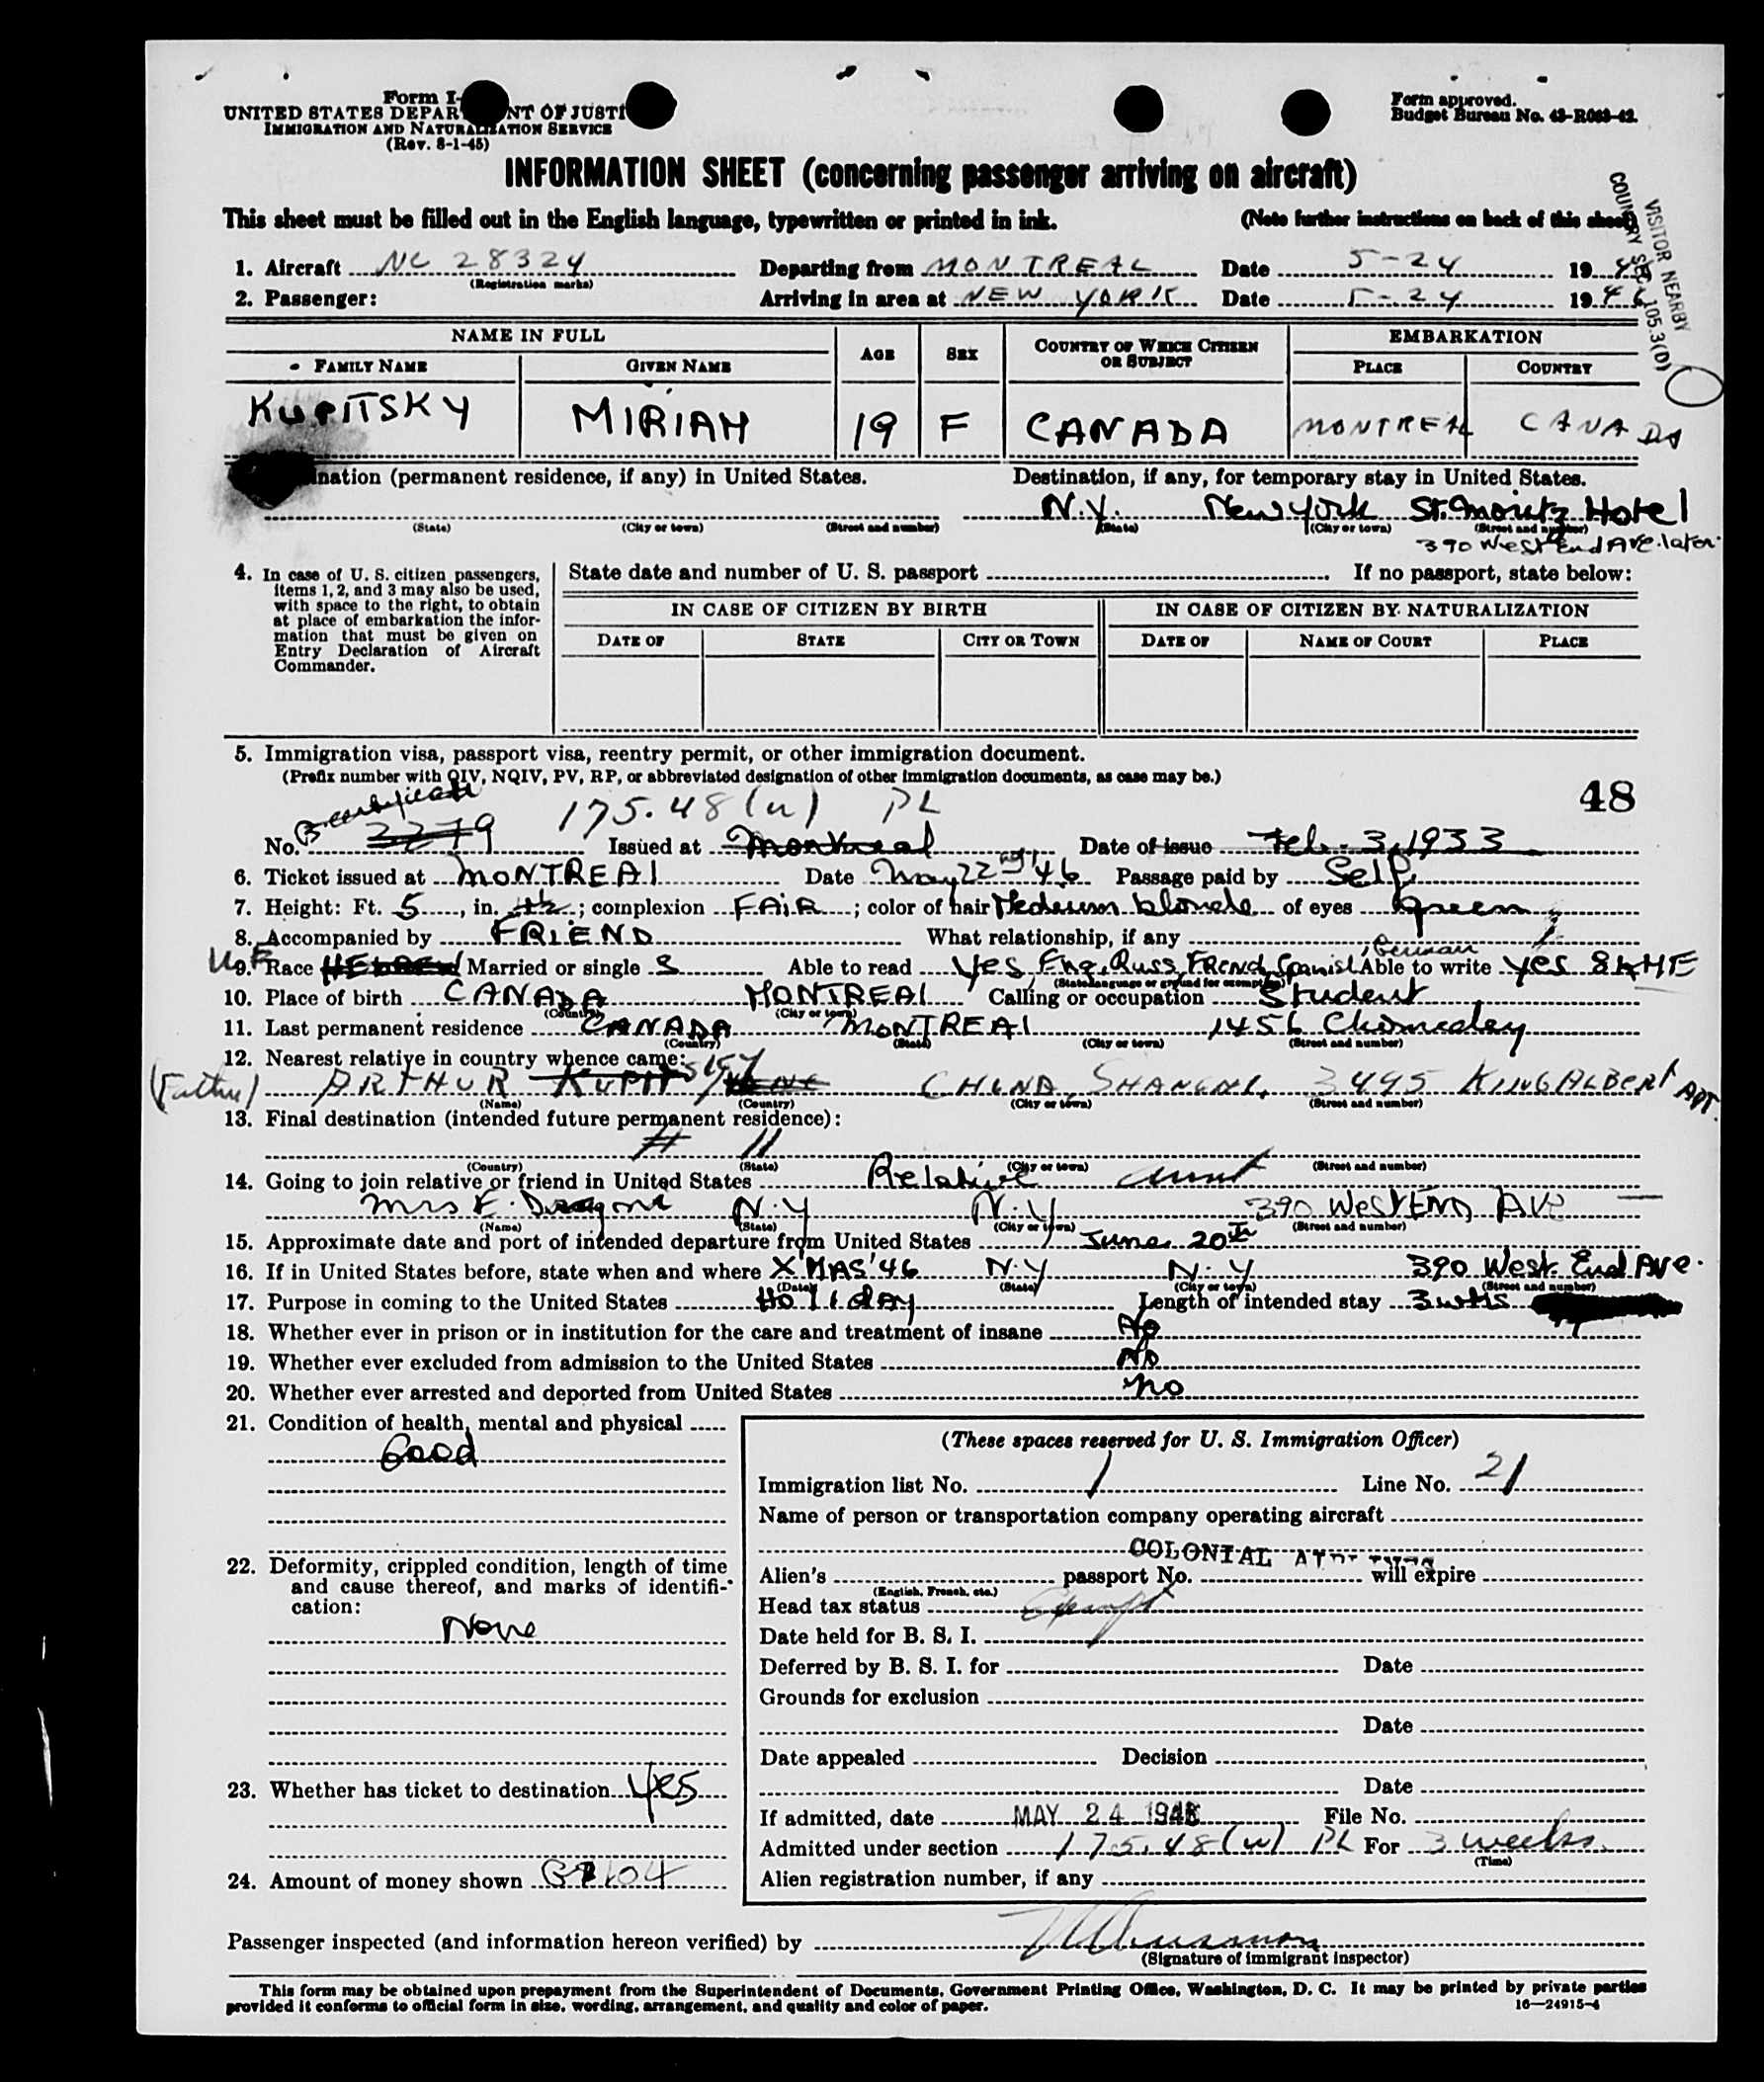 Form I-
UNITED STATES DEPAR NT OF JUSTI
IMMIGRATION AND NATURALIZATION SERVICE
(Rev. 8-1-45)
Form approved.
Budget Bureau No. 43-R083-42.
INFORMATION SHEET (concerning passenger arriving on aircraft)
This sheet must be filled out in the English language, typewritten or printed in ink. (Note further instructions on back of this sheet)
VISITOR NEARBY
COUNTRY SEC. 105.3(D)
1. Aircraft NC 28324 Departing from MONTREAL Date 5-24 19 46
(Registration marks)
2. Passenger: Arriving in area at NEW YORK Date 5-24 19 46
NAME IN FULL AGE SEX COUNTRY OF WHICH CITIZEN OR SUBJECT EMBARKATION
FAMILY NAME GIVEN NAME PLACE COUNTRY
KUPITSKY MIRIAM 19 F CANADA MONTREAL CANADA
ination (permanent residence, if any) in United States. Destination, if any, for temporary stay in United States.
N.Y. New York St. Moritz Hotel
(State) (City or town) (Street and number) (State) (City or town) (Street and number)
390 West End Ave. later.
4. In case of U. S. citizen passengers, items 1, 2, and 3 may also be used, with space to the right, to obtain at place of embarkation the information that must be given on Entry Declaration of Aircraft Commander.
State date and number of U. S. passport If no passport, state below:
IN CASE OF CITIZEN BY BIRTH IN CASE OF CITIZEN BY NATURALIZATION
DATE OF STATE CITY OR TOWN DATE OF NAME OF COURT PLACE
5. Immigration visa, passport visa, reentry permit, or other immigration document.
(Prefix number with QIV, NQIV, PV, RP, or abbreviated designation of other immigration documents, as case may be.)
48
B. certificate 175.48(u) PL
No. 3279 Issued at Montreal Date of issue Feb. 3, 1933
6. Ticket issued at MONTREAL Date May 22nd '46 Passage paid by Self
7. Height: Ft. 5, in. ; complexion FAIR; color of hair Medium blonde of eyes green
8. Accompanied by FRIEND What relationship, if any
9. Race HEBREW Married or single S Able to read Yes, Eng, Russ, FRENCH, Spanish, German Able to write Yes SAME
(State language or ground for exemption)
10. Place of birth CANADA MONTREAL Calling or occupation Student
(Country) (City or town)
11. Last permanent residence CANADA MONTREAL 1456 Chomedey
(Country) (State) (City or town) (Street and number)
12. Nearest relative in country whence came:
(Father) ARTHUR KUPITSKY CHINA, SHANGHI, 3495 KING ALBERT APT.
(Name) (Country) (City or town) (Street and number)
13. Final destination (intended future permanent residence):
(Country) (State) (City or town) (Street and number)
14. Going to join relative or friend in United States Relative Aunt
Mrs E. N.Y N.Y 390 West END AVE
(Name) (State) (City or town) (Street and number)
15. Approximate date and port of intended departure from United States June 20th
16. If in United States before, state when and where X'MAS '46 N.Y N.Y 390 West End Ave.
(Date) (State) (City or town) (Street and number)
17. Purpose in coming to the United States Holiday Length of intended stay 3 wks
18. Whether ever in prison or in institution for the care and treatment of insane No
19. Whether ever excluded from admission to the United States No
20. Whether ever arrested and deported from United States No
21. Condition of health, mental and physical
Good
22. Deformity, crippled condition, length of time and cause thereof, and marks of identification:
None
23. Whether has ticket to destination Yes
24. Amount of money shown 104
(These spaces reserved for U. S. Immigration Officer)
Immigration list No. 1 Line No. 21
Name of person or transportation company operating aircraft
COLONIAL AIRLINES
Alien's passport No. will expire
(English, French, etc.)
Head tax status Exempt
Date held for B. S. I.
Deferred by B. S. I. for Date
Grounds for exclusion
Date
Date appealed Decision
Date
If admitted, date MAY 24 1946 File No.
Admitted under section 175.48(u) PL For 3 weeks
(Time)
Alien registration number, if any
Passenger inspected (and information hereon verified) by
(Signature of immigrant inspector)
This form may be obtained upon prepayment from the Superintendent of Documents, Government Printing Office, Washington, D. C. It may be printed by private parties
provided it conforms to official form in size, wording, arrangement, and quality and color of paper. 16—24915-4